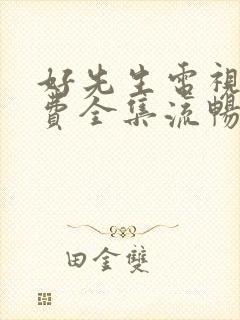 好先生電視
費全集流暢
田金雙